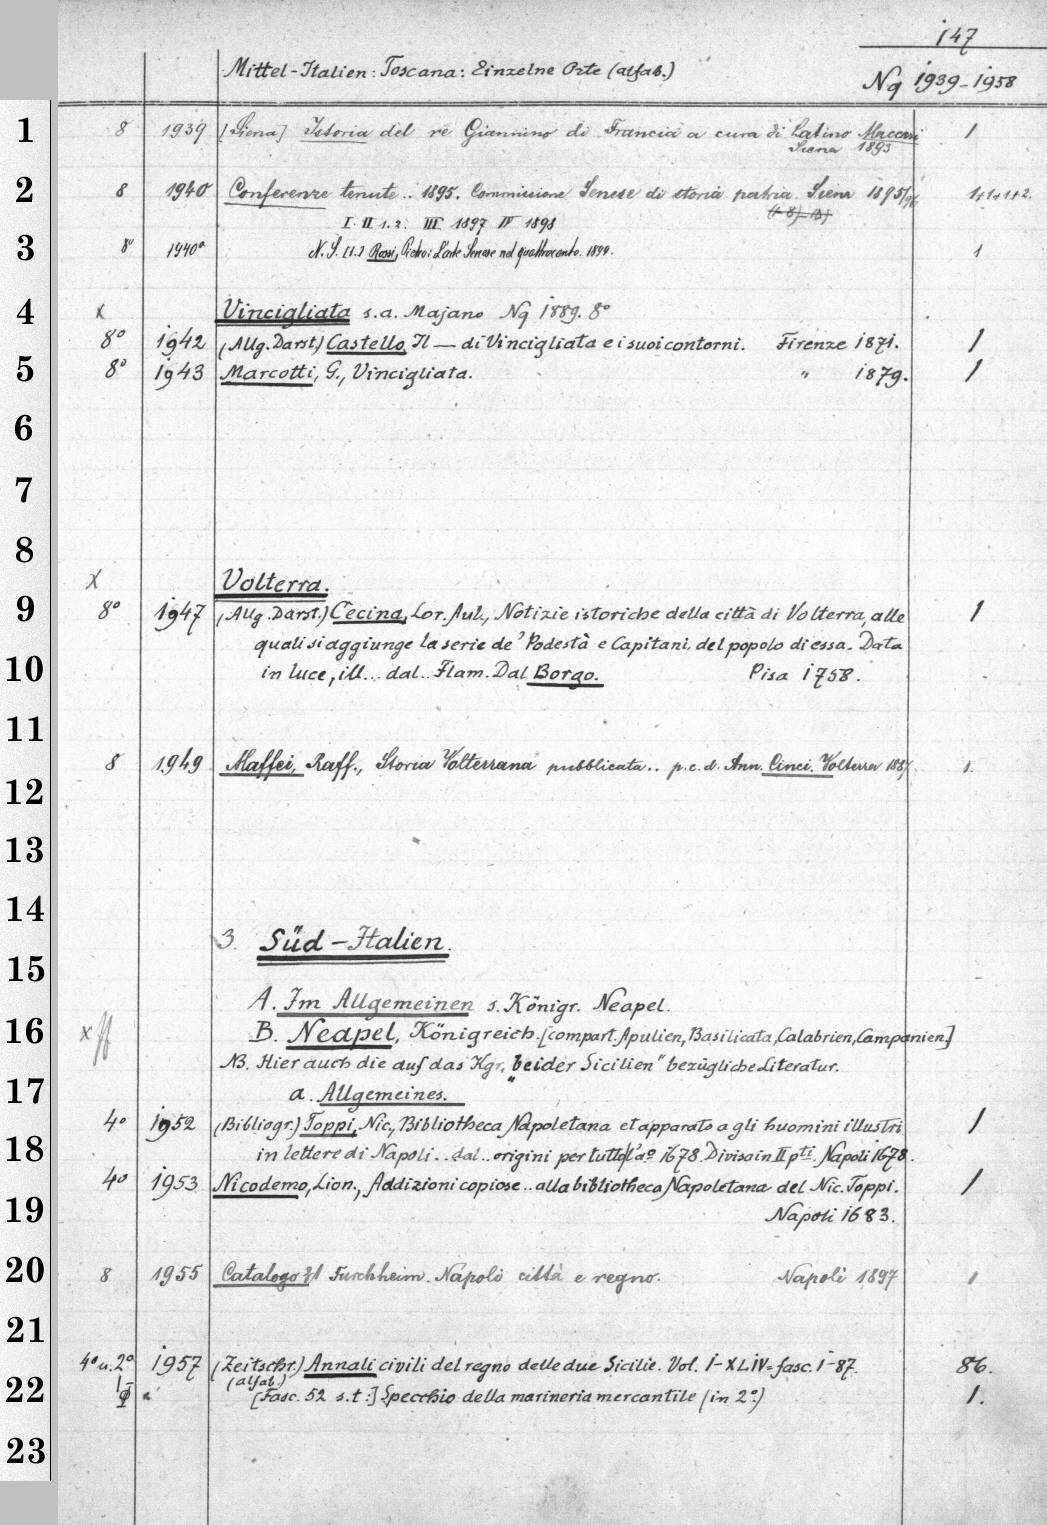 147
Mittel-Italien: Toscana: Einzelne Orte (alfab.)
Nq 1939-1958
1 8 1939 [Siena] Istoria del re Giannino di Francia a cura di Latino Maccari 1
Siena 1893
2 8 1940 Conferenze tenute .. 1895. Commissione Senese di storia patria. Siena 1895/96 1+1+1+2.
I. II 1.2. III 1897 IV 1898
3 8° 1940a N.S. [1.] Rossi, Pietro: L'arte Senese nel quattrocento. 1899. 1
4 x Vincigliata s.a. Majano Nq 1889. 8°
8° 1942 (Allg. Darst.) Castello, Il — di Vincigliata e i suoi contorni. Firenze 1871. 1
5 8° 1943 Marcotti, G., Vincigliata. " 1879. 1
6
7
8
x Volterra.
9 8° 1947 (Allg. Darst.) Cecina, Lor. Aul., Notizie istoriche della città di Volterra, alle 1
quali si aggiunge la serie de' Podestà e Capitani, del popolo di essa. Data
10 in luce, ill... dal.. Flam. Dal Borgo. Pisa 1758.
11
8 1949 Maffei, Raff., Storia Volterrana pubblicata.. p.c.d. Ann. Cinci. Volterra 1887 1.
12
13
14
3. Süd-Italien.
15
A. Im Allgemeinen s. Königr. Neapel.
16 x ff B. Neapel, Königreich. [compart. Apulien, Basilicata, Calabrien, Campanien.]
NB. Hier auch die auf das Kgr. "beider Sicilien" bezügliche Literatur.
17 a. Allgemeines.
4° 1952 (Bibliogr.) Toppi, Nic., Bibliotheca Napoletana et apparato a gli huomini illustri 1
18 in lettere di Napoli.. dal.. origini per tutto l'ao 1678. Divisa in II pti. Napoli 1678.
4° 1953 Nicodemo, Lion., Addizioni copiose.. alla bibliotheca Napoletana del Nic. Toppi. 1
19 Napoli 1683.
20 8 1955 Catalogo Furchheim. Napoli città e regno. Napoli 1897 1
21
4° u. 2° 1957 (Zeitschr.) Annali civili del regno delle due Sicilie. Vol. I-XLIV = fasc. 1-87. 86.
(alfab.)
22 [Fasc. 52 s.t:] Specchio della marineria mercantile (in 2°.) 1.
23